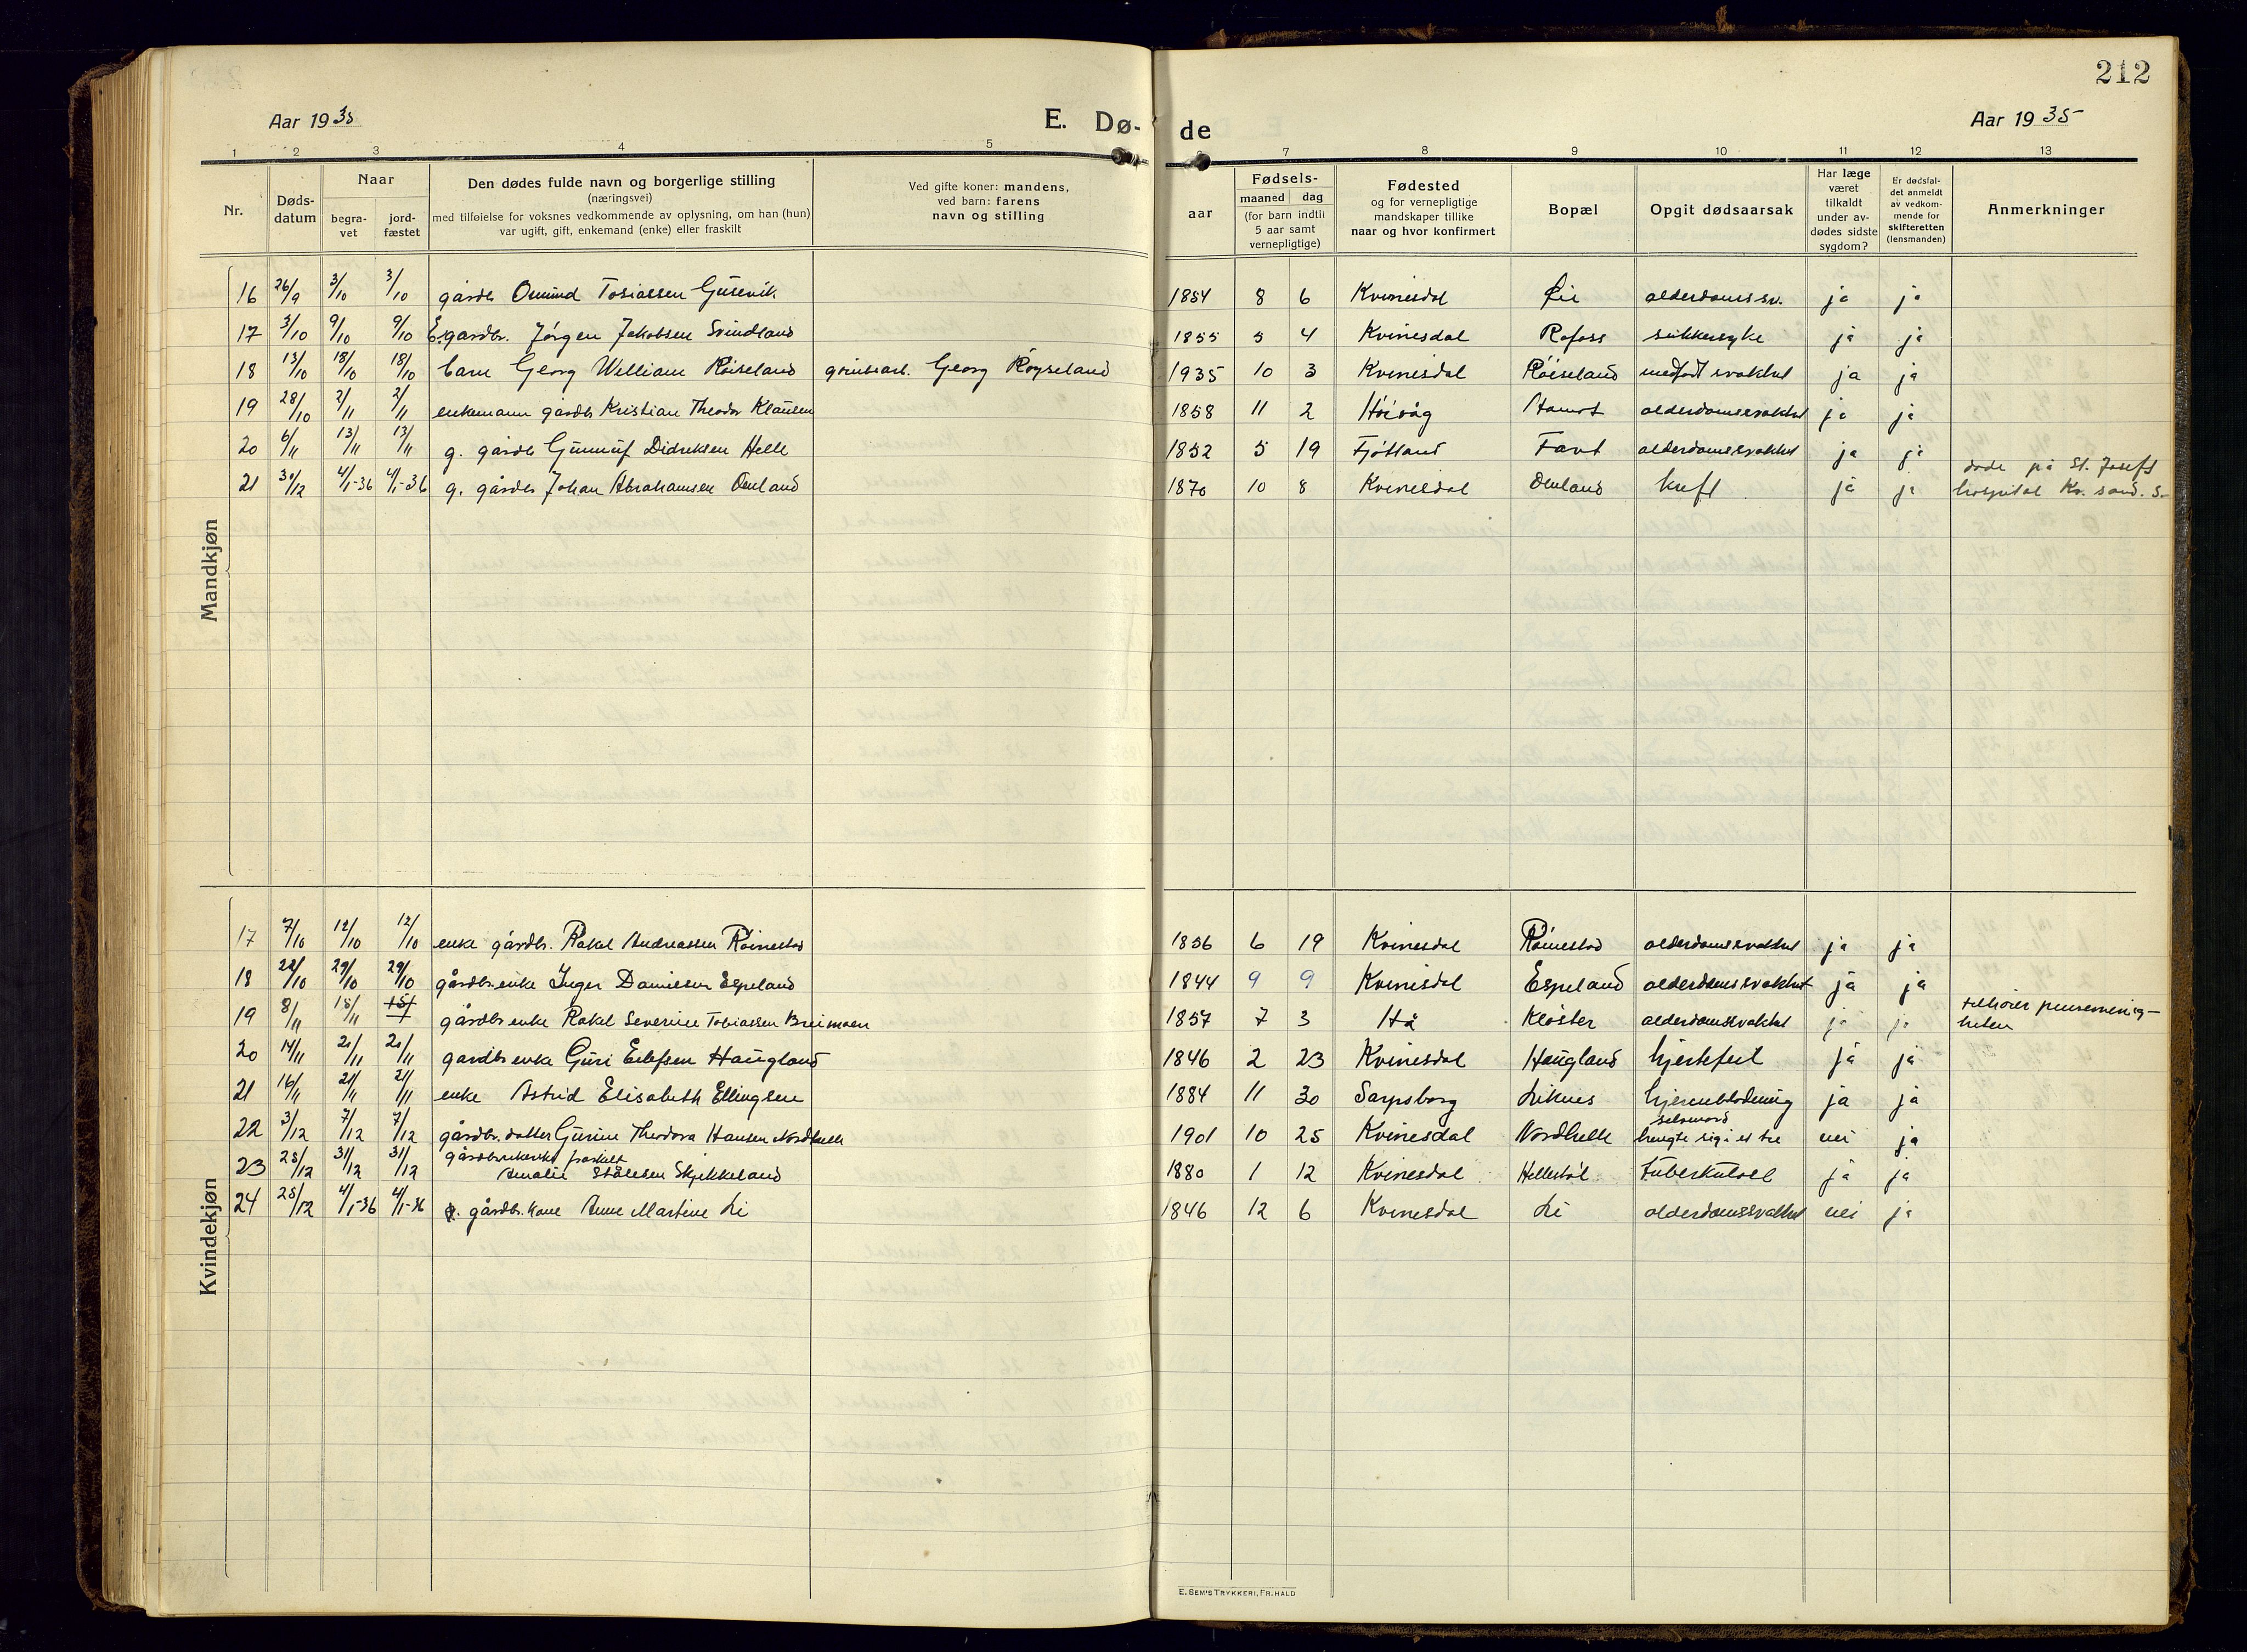 212
Aar 1935
E. Dø-
de
Aar 1935
1 2 3 4 5 6 7 8 9 10 11 12 13
Nr.
Døds-
datum
Naar
begra-
vet
jord-
fæstet
Den dødes fulde navn og borgerlige stilling
(næringsvei)
med tilføielse for voksnes vedkommende av oplysning, om han (hun)
var ugift, gift, enkemand (enke) eller fraskilt
Ved gifte koner: mandens,
ved barn: farens
navn og stilling
Fødsels-
aar
maaned dag
(for barn indtil
5 aar samt
vernepligtige)
Fødested
og for vernepligtige
mandskaper tillike
naar og hvor konfirmert
Bopæl
Opgit dødsaarsak
Har læge
været
tilkaldt
under av-
dødes sidste
sygdom?
Er dødsfal-
det anmeldt
av vedkom-
mende for
skifteretten
(lensmanden)
Anmerkninger
Mandkjøn
16 26/9 3/10 3/10 gårdbr Osmund Tobiassen Gusevik 1854 8 6 Kvinesdal Øie alderdomssv. ja ja
17 3/10 9/10 9/10 E. gardbr. Jörgen Jakobsen Svindland 1855 5 4 Kvinesdal Rafoss sukkersyke ja ja
18 13/10 18/10 18/10 barn Georg William Röiseland grubearb. Georg Röyseland 1935 10 3 Kvinesdal Röiseland medfödt svakhet ja ja
19 28/10 2/11 2/11 enkemann gårdbr Kristian Theodor Klausen 1858 11 2 Höivåg alderdomssvakhet ja ja
20 6/11 13/11 13/11 g. gårdbr Gunnuf Didriksen Helle 1852 5 19 Fjötland alderdomssvakhet ja ja
21 30/12 4/1-36 4/1-36 g. gårdbr Johan Abrahamsen Omland 1870 10 8 Kvinesdal Omland kreft ja ja döde på St. Josefs
hospital Kr.sand. S.
Kvindekjøn
17 7/10 12/10 12/10 enke gårdbr. Rakel Andreassen Röinestad 1856 6 19 Kvinesdal Röinestad alderdomssvakhet ja ja
18 22/10 29/10 29/10 gårdbr.enke Inger Danielsen Espeland 1844 9 9 Kvinesdal Espeland alderdomssvakhet ja ja
19 8/11 15/11 15/ gårdbr enke Rakel Severine Tobiassen Breimoen 1857 7 3 Hå Klöster alderdomssvakhet ja ja tilhörer pinsemenig-
heten
20 14/11 21/11 21/11 gardbr enke Guri Eilefsen Haugland 1846 2 23 Kvinesdal Haugland hjertefeil ja ja
21 16/11 21/11 21/11 enke Astrid Elisabeth Ellingsen 1884 11 30 Sarpsborg Liknes hjerneblödning ja ja
22 3/12 7/12 7/12 gårdbr. datter Gurine Theodora Hansen Nordhelle 1901 10 25 Kvinesdal Nordhelle selvmord
hengte sig i et tre nei ja
23 25/12 31/12 31/12 fraskilt
Amalie Stålesen Skjekkeland 1880 1 12 Kvinesdal Tuberkulose ja ja
24 25/12 4/1-36 4/1-36 g. gårdbr. kone Anne Martine Li 1846 12 6 Kvinesdal Li alderdomssvakhet nei ja
E. SEM'S TRYKKERI, FR.HALD